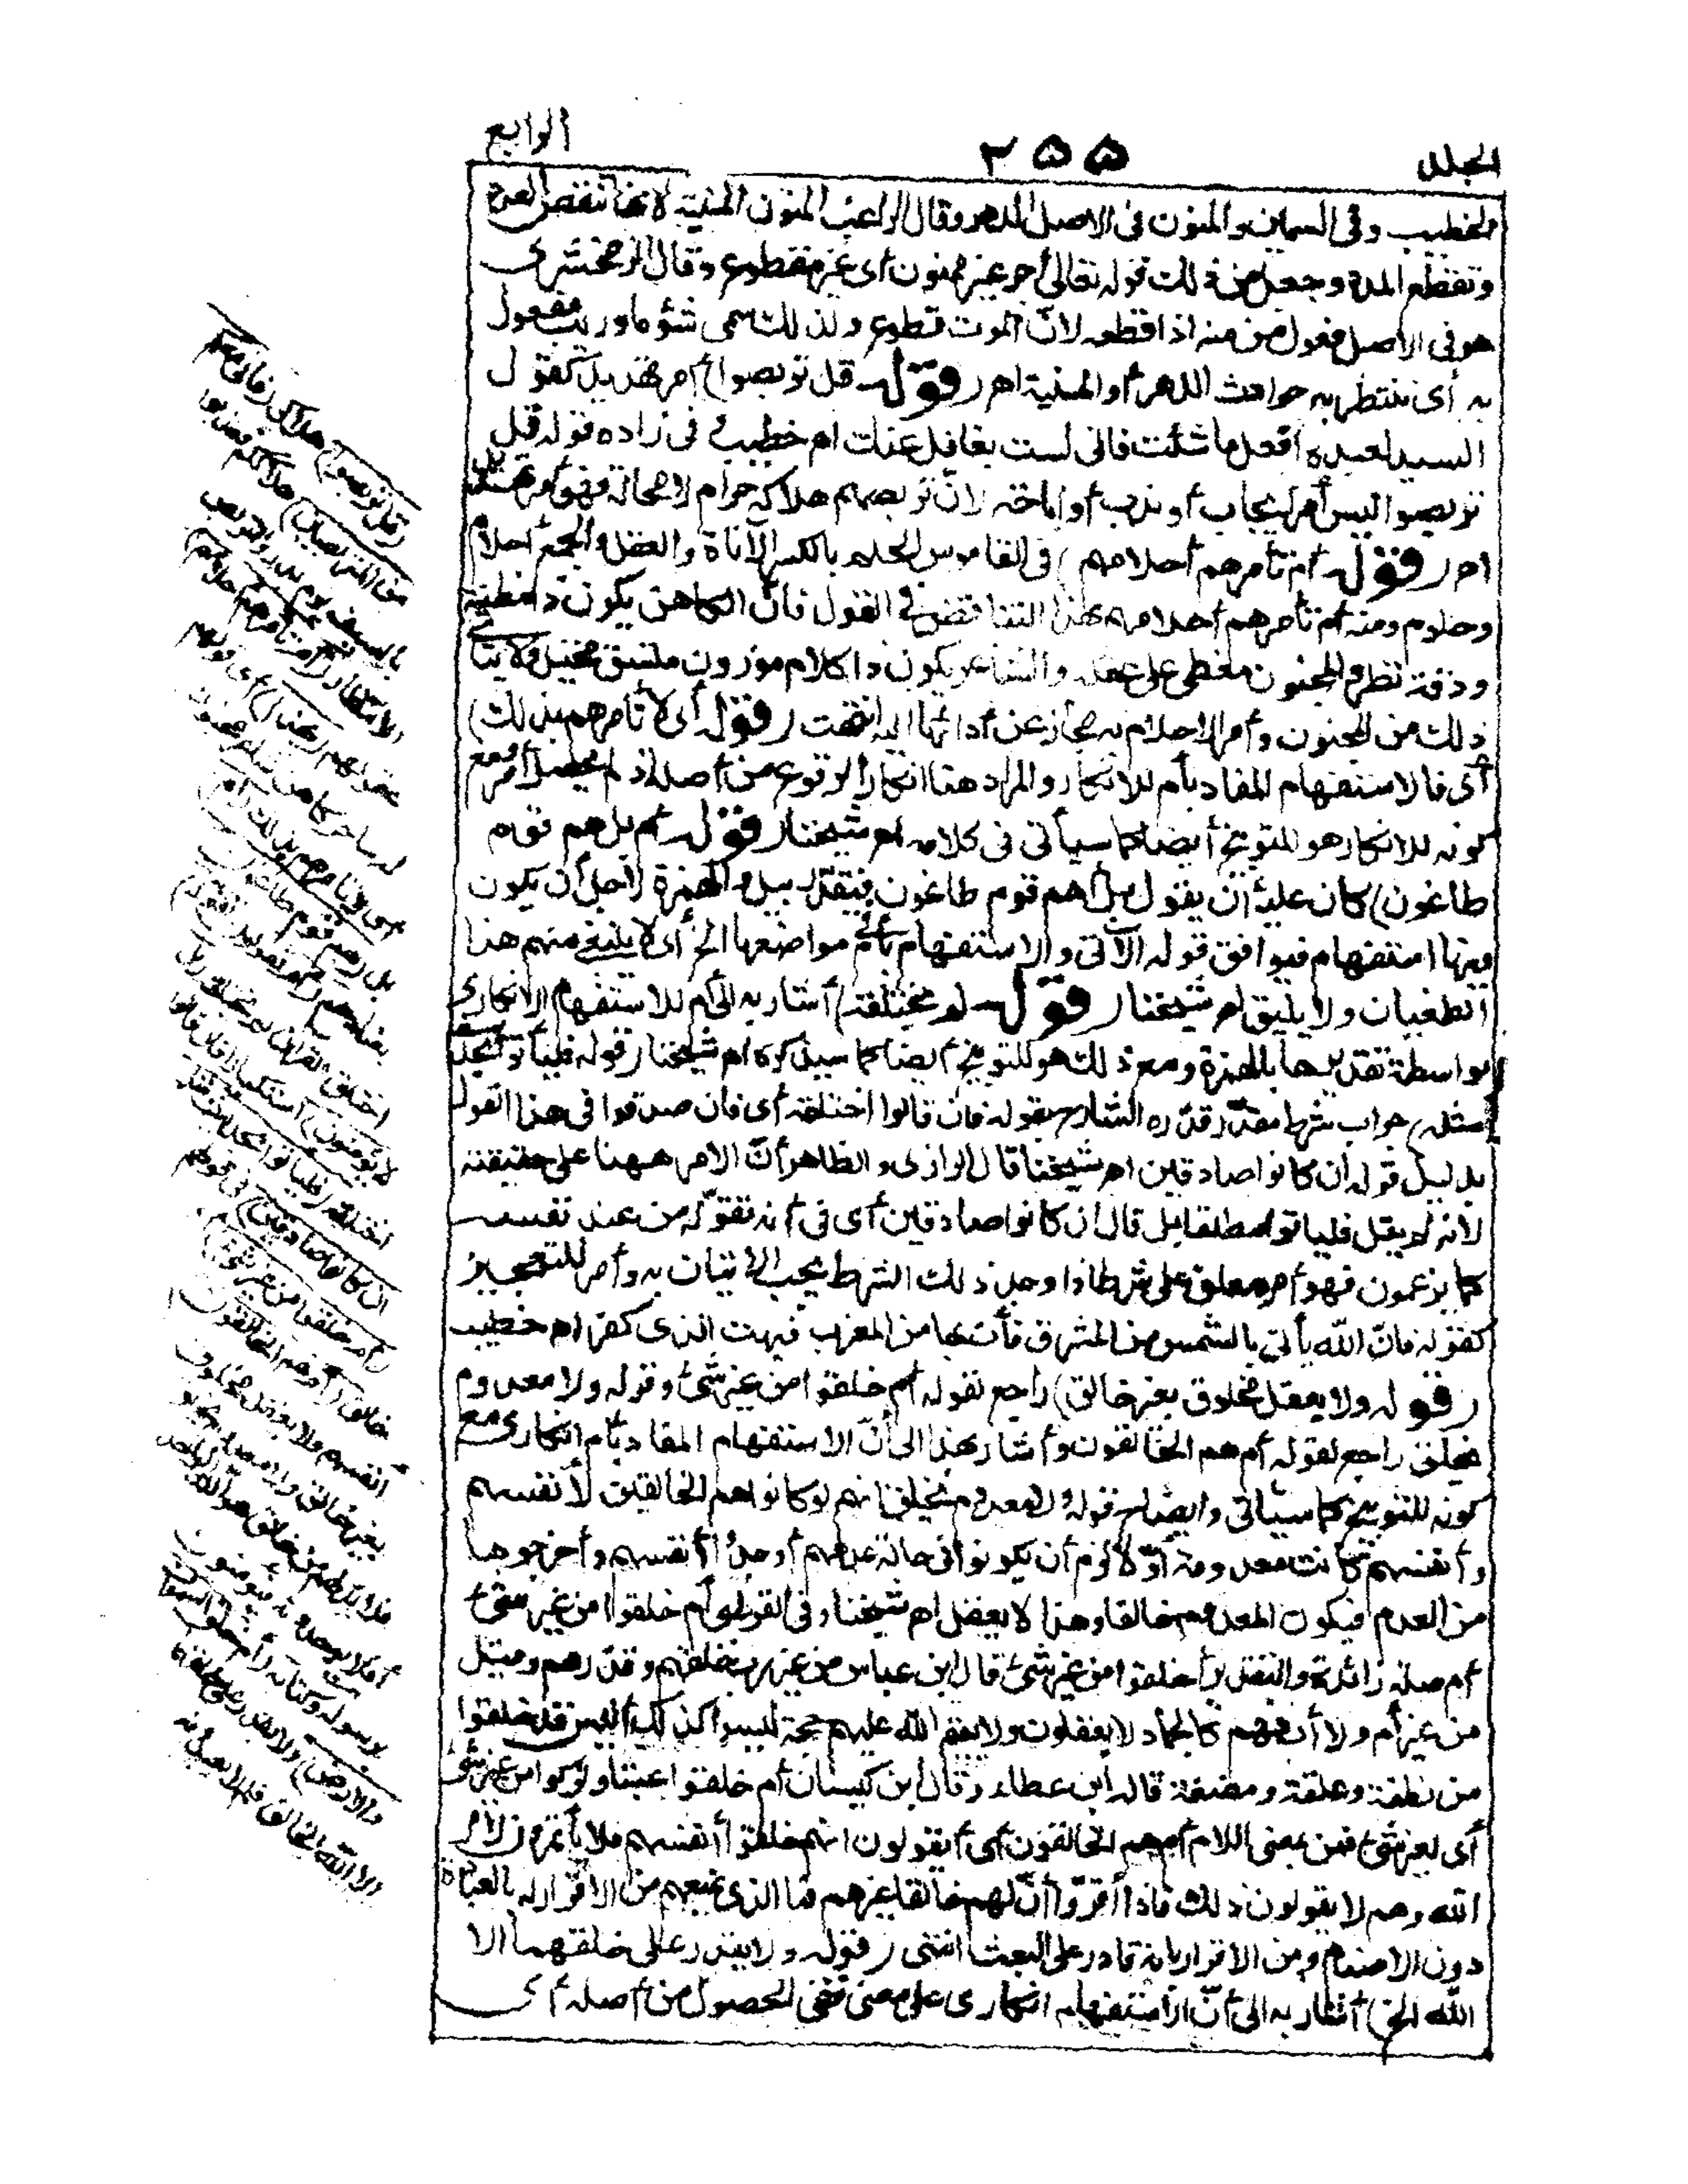 المجلد
٢٥٥
الرابع
الخطيب وفى السمين والمنون فى الاصل الدهر وقال الراغب المنون المنية لانها تنقص العدد
وتقطع المدة وجعل من ذلك قوله تعالى أجر غير ممنون أى غير مقطوع وقال الزمخشرى
هو فى الأصل فعول من منه اذا قطعه لانّ الموت قطوع ولذلك سمى شئوما وريب مفعول
به أى ننتظر به حوادث الدهر أو المنية اهـ (قوله قل تربصوا) أمر تهديد كقول
السيد لعبده افعل ما شئت فانى لست بغافل عنك اهـ خطيب وفى زاده قوله قل
تربصوا ليس أمر ايجاب أو ندب أو اباحة لانّ تربصهم هلاكه حرام لا محالة فهو أمر تهديد
اهـ (قوله أم تأمرهم أحلامهم) فى القاموس الحلم بالكسر الأناة والعقل والجمع أحلام
وحلوم ومنه أم تأمرهم أحلامهم بهذا التناقض فى القول فانّ الكاهن يكون ذا فطنة
ودقة نظر والمجنون مغطى على عقله والشاعر يكون ذا كلام موزون متسق مخيل ولا يتأتى
ذلك من المجنون وأمر الاحلام به مجاز عن أدائها اليه انتهت (قوله أى لا تأمرهم بذلك)
أى فالاستفهام المفاد بأم للانكار والمراد هنا انكار الوقوع من أصله اذ لم يحصل أمر مع
كونه للانكار هو للتوبيخ أيضا كما سيأتى فى كلامه اهـ شيخنا (قوله أم بل هم قوم
طاغون) كان عليه أن يقول بل أهم قوم طاغون فيقدّر ببل والهمزة لأجل أن يكون
فيها استفهام فيوافق قوله الآتى والاستفهام بأم فى مواضعها الخ أى لا ينبغى منهم هذا
الطغيان ولا يليق اهـ شيخنا (قوله لم يختلقه) أشار به الى أم للاستفهام الانكارى
بواسطة تقديرها بالهمزة ومع ذلك هو للتوبيخ أيضا كما سيذكره اهـ شيخنا (قوله فليأتوا بحديث
مثله) جواب شرط مقدّر قدّره الشارح بقوله فان قالوا اختلقه أى فان صدقوا فى هذا القول
بدليل قوله ان كانوا صادقين اهـ شيخنا قال الرازى والظاهر أنّ الامر ههنا على حقيقته
لانه لم يقل فليأتوا مطلقا بل قال ان كانوا صادقين أى فى أنه تقوّله من عند نفسه
كما يزعمون فهو أمر معلق على شرط اذا وجد ذلك الشرط يجب الاتيان به وأمر للتعجيز
كقوله فانّ الله يأتى بالشمس من المشرق فأت بها من المغرب فبهت الذى كفر اهـ خطيب
(قوله ولا يعقل مخلوق بغير خالق) راجع لقوله أم خلقوا من غير شئ وقوله ولا معدوم
يخلق راجع لقوله أم هم الخالقون وأشار بهذا الى أنّ الاستفهام المفاد بأم انكارى مع
كونه للتوبيخ كما سيأتى وايضاح قوله ولا معدوم يخلق انهم لو كانوا هم الخالقين لأنفسهم
وأنفسهم كانت معدومة أوّلا لزم أن يكونوا فى حالة عدمهم أوجدوا أنفسهم وأخرجوها
من العدم فيكون المعدوم خالقا وهذا لا يعقل اهـ شيخنا وفى القرطبى أم خلقوا من غير شئ
أم صلة زائدة والتقدير أخلقوا من غير شئ قال ابن عباس من غير رب خلقهم وقدّرهم وقيل
من غير أم ولا أب فهم كالجماد لا يعقلون ولا يقوم الله عليهم حجة ليسوا كذلك أليس قد خلقوا
من نطفة وعلقة ومضغة قاله ابن عطاء وقال ابن كيسان أم خلقوا عبثا وتركوا من غير شئ
أى لغير شئ فمن بمعنى اللام أم هم الخالقون أى أيقولون انهم خلقوا أنفسهم فلا يأتمرون لأمر
الله وهم لا يقولون ذلك فاذا أقرّوا أنّ لهم خالقا غيرهم فما الذى يمنعهم من الاقرار له بالعبادة
دون الاصنام ومن الاقرار بانه قادر على البعث انتهى (قوله ولا يقدر على خلقهما الا
الله الخ) أشار به الى أنّ الاستفهام انكارى على معنى نفى الحصول من أصله أى
(قل تربصوا) هلاكى (فانى معكم
من المتربصين) هلاككم فعذبوا
بالسيف يوم بدر والتربص
الانتظار (أم تأمرهم أحلامهم)
عقولهم (بهذا) أى قولهم
له ساحر كاهن شاعر مجنون
أى لا تأمرهم بذلك (أم)
بل (هم قوم طاغون)
بعنادهم (أم يقولون تقوله)
اختلق القرآن لم يختلقه (بل
لا يؤمنون) استكبارا فان قالوا
اختلقه (فليأتوا بحديث مثله
ان كانوا صادقين) فى قولهم
(أم خلقوا من غير شئ)
خالق (أم هم الخالقون)
أنفسهم ولا يعقل مخلوق
بغير خالق ولا معدوم يخلق
فلا بدّ لهم من خالق هو الله الواحد
أفلا يوحدونه ويؤمنون
برسوله وكتابه (أم خلقوا السموات
والارض) ولا يقدر على خلقهما
الا الله الخالق فلم لا يعبدونه